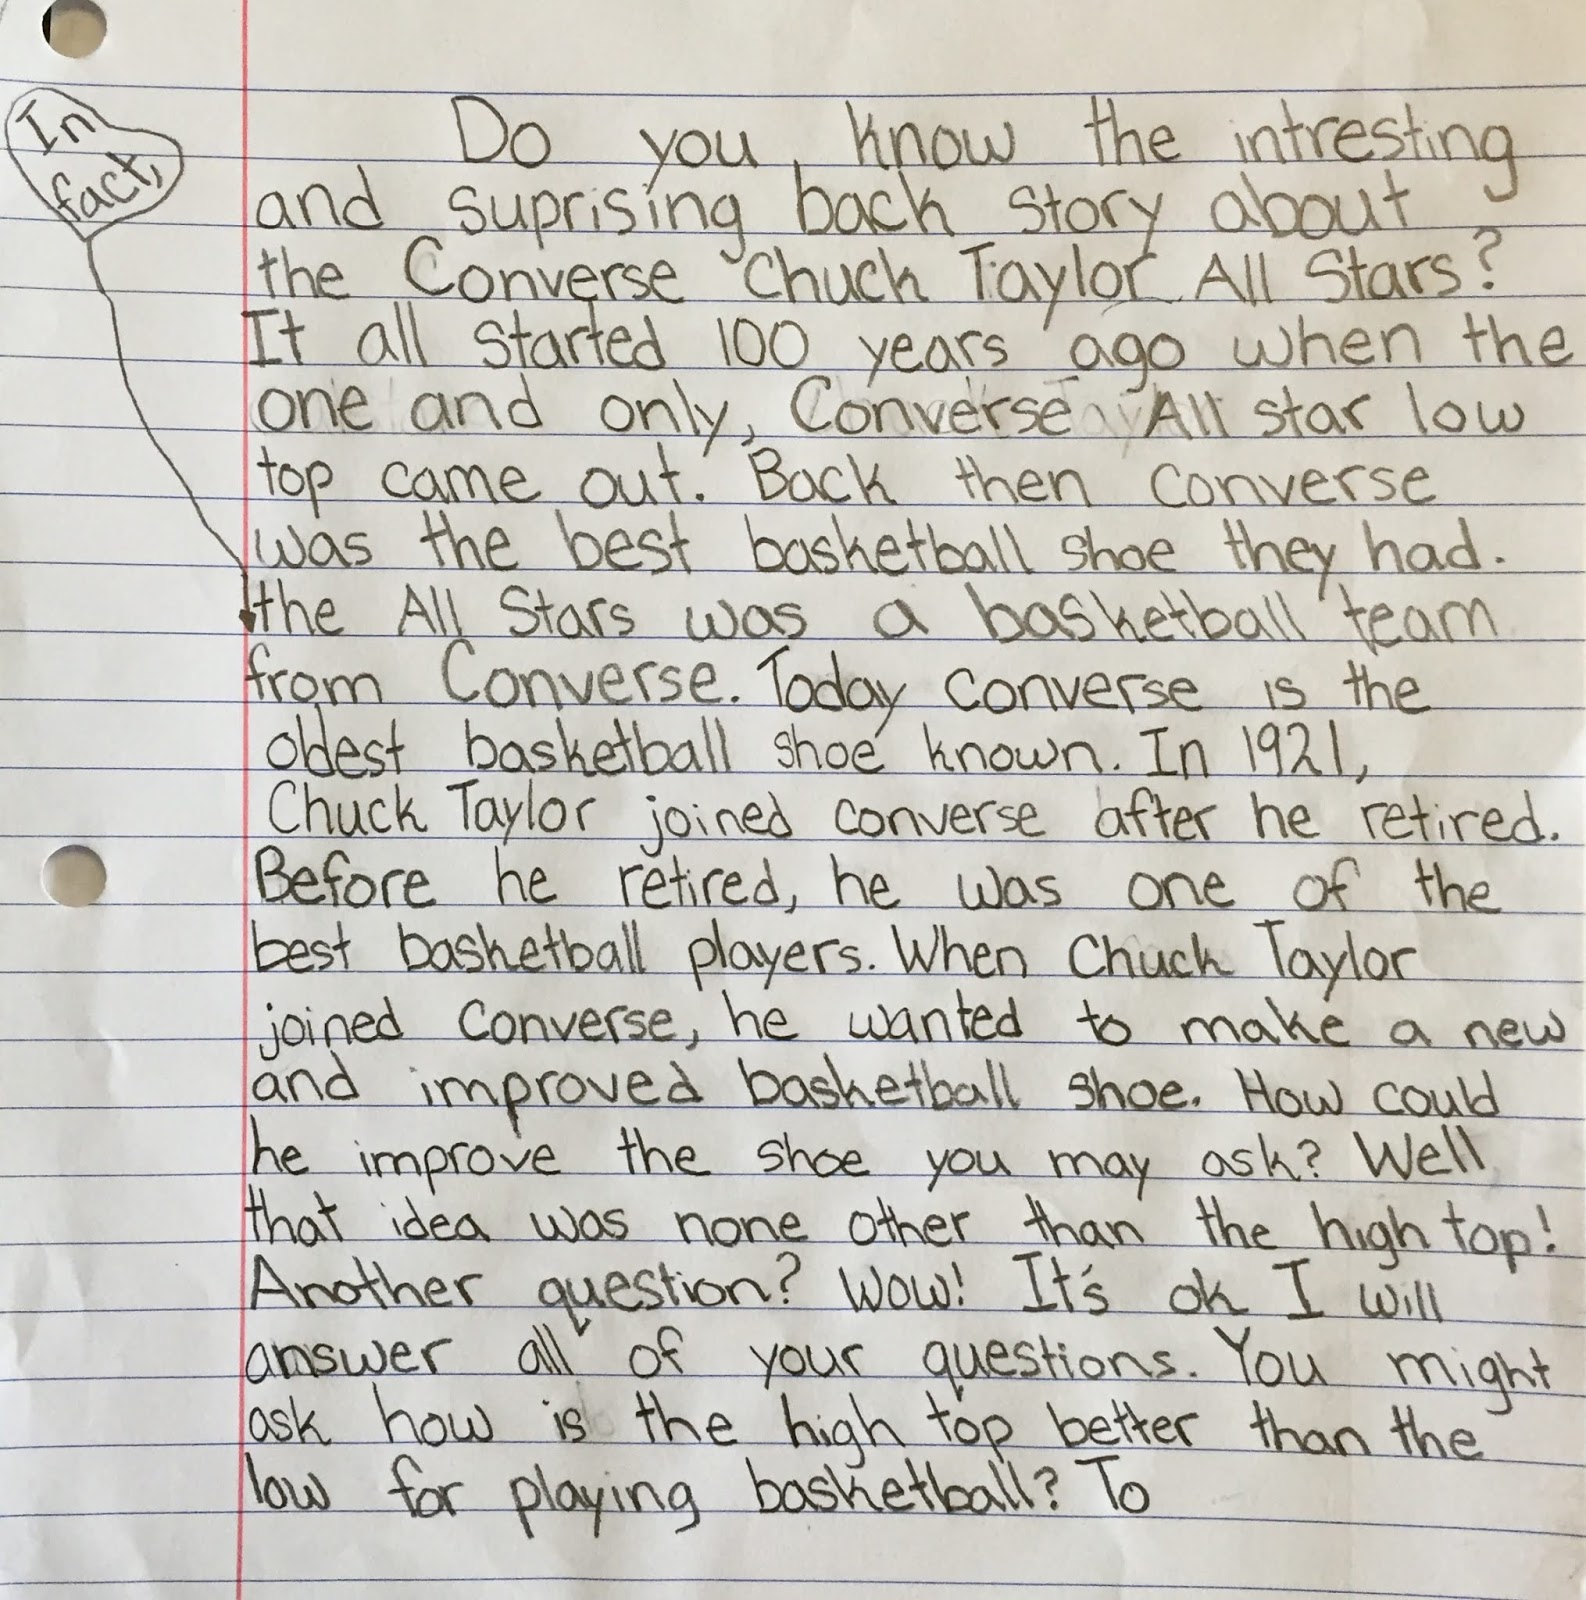 In
fact,
Do you know the intresting
and suprising back story about
the Converse Chuck Taylor All Stars?
It all started 100 years ago when the
one and only, Converse All star low
top came out. Back then Converse
was the best basketball shoe they had.
the All Stars was a basketball team
from Converse. Today Converse is the
oldest basketball shoe known. In 1921,
Chuck Taylor joined converse after he retired.
Before he retired, he was one of the
best basketball players. When Chuck Taylor
joined Converse, he wanted to make a new
and improved basketball shoe. How could
he improve the shoe you may ask? Well
that idea was none other than the high top!
Another question? Wow! It's ok I will
answer all of your questions. You might
ask how is the high top better than the
low for playing basketball? To